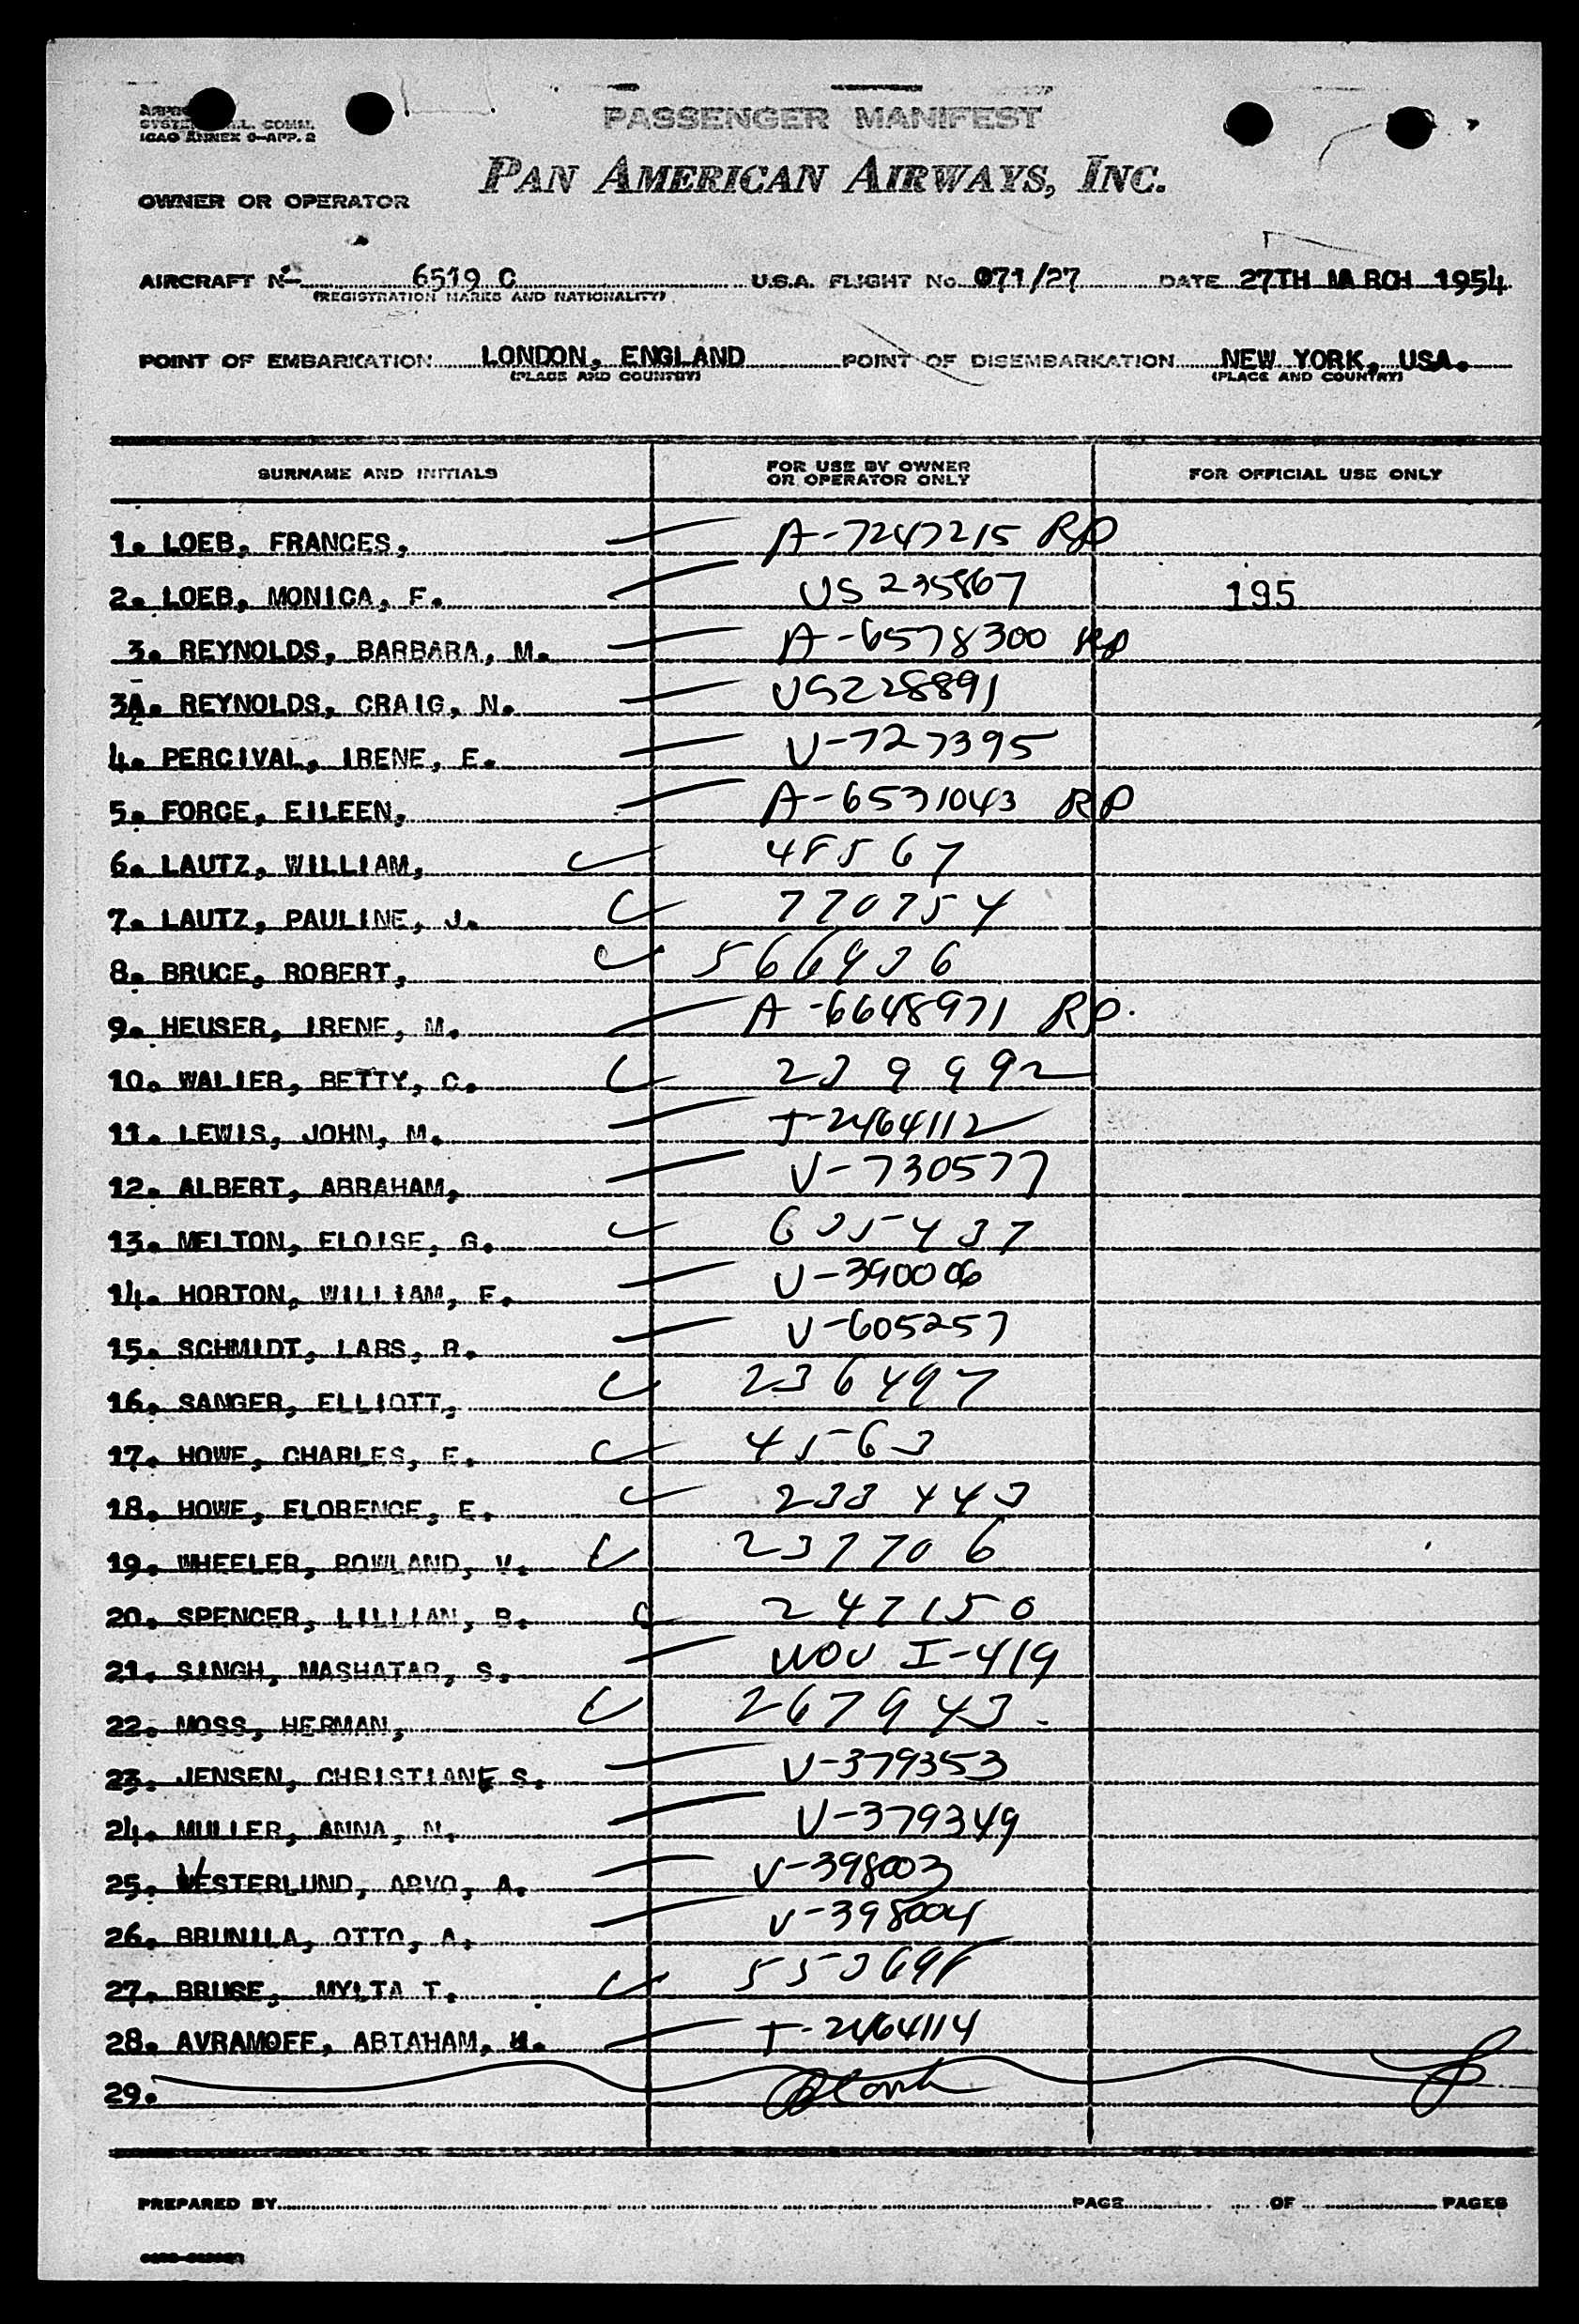 SYSTE L. COMM.
ICAO ANNEX 9-APP. 2
PASSENGER MANIFEST
PAN AMERICAN AIRWAYS, INC.
OWNER OR OPERATOR
AIRCRAFT N- 6519 C U.S.A. FLIGHT No. 071/27 DATE 27TH MARCH 1954
(REGISTRATION MARKS AND NATIONALITY)
POINT OF EMBARKATION LONDON, ENGLAND POINT OF DISEMBARKATION NEW YORK, USA.
(PLACE AND COUNTRY) (PLACE AND COUNTRY)
SURNAME AND INITIALS FOR USE BY OWNER OR OPERATOR ONLY FOR OFFICIAL USE ONLY
1. LOEB, FRANCES, A-7247215 RP
2. LOEB, MONICA, F. US 235867 195
3. REYNOLDS, BARBARA, M. A-6578300 RP
3A. REYNOLDS, CRAIG, N. US228891
4. PERCIVAL, IRENE, E. V-727395
5. FORCE, EILEEN, A-6531043 RP
6. LAUTZ, WILLIAM, 48567
7. LAUTZ, PAULINE, J. 770754
8. BRUCE, ROBERT, 566436
9. HEUSER, IRENE, M. A-6648971 RP.
10. WALLER, BETTY, C. 239992
11. LEWIS, JOHN, M. T-2464112
12. ALBERT, ABRAHAM, V-730577
13. MELTON, ELOISE, G. 635437
14. HORTON, WILLIAM, F. V-390006
15. SCHMIDT, LARS, R. V-605257
16. SANGER, ELLIOTT, 236497
17. HOWE, CHARLES, E. 4563
18. HOWE, FLORENCE, E. 233443
19. WHEELER, ROWLAND, V. 237706
20. SPENCER, LILLIAN, B. 247150
21. SINGH, MASHATAR, S. WOV I-419
22. MOSS, HERMAN, 267943
23. JENSEN, CHRISTIANE S. V-379353
24. MULLER, ANNA, N. V-379349
25. VESTERLUND, ARVO, A. V-398003
26. BRUNILA, OTTO, A. V-398004
27. BRUSE, MYLTA T. 553698
28. AVRAMOFF, ABTAHAM, H. T-2464114
29.
PREPARED BY PAGE OF PAGES